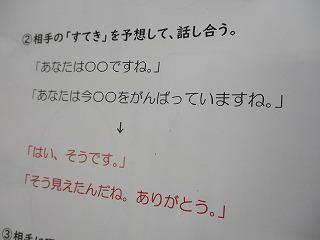 ②相手の「すてき」を予想して、話し合う。
「あなたは〇〇ですね。」
「あなたは今〇〇をがんばっていますね。」
↓
「はい、そうです。」
「そう見えたんだね。ありがとう。」
③相手に